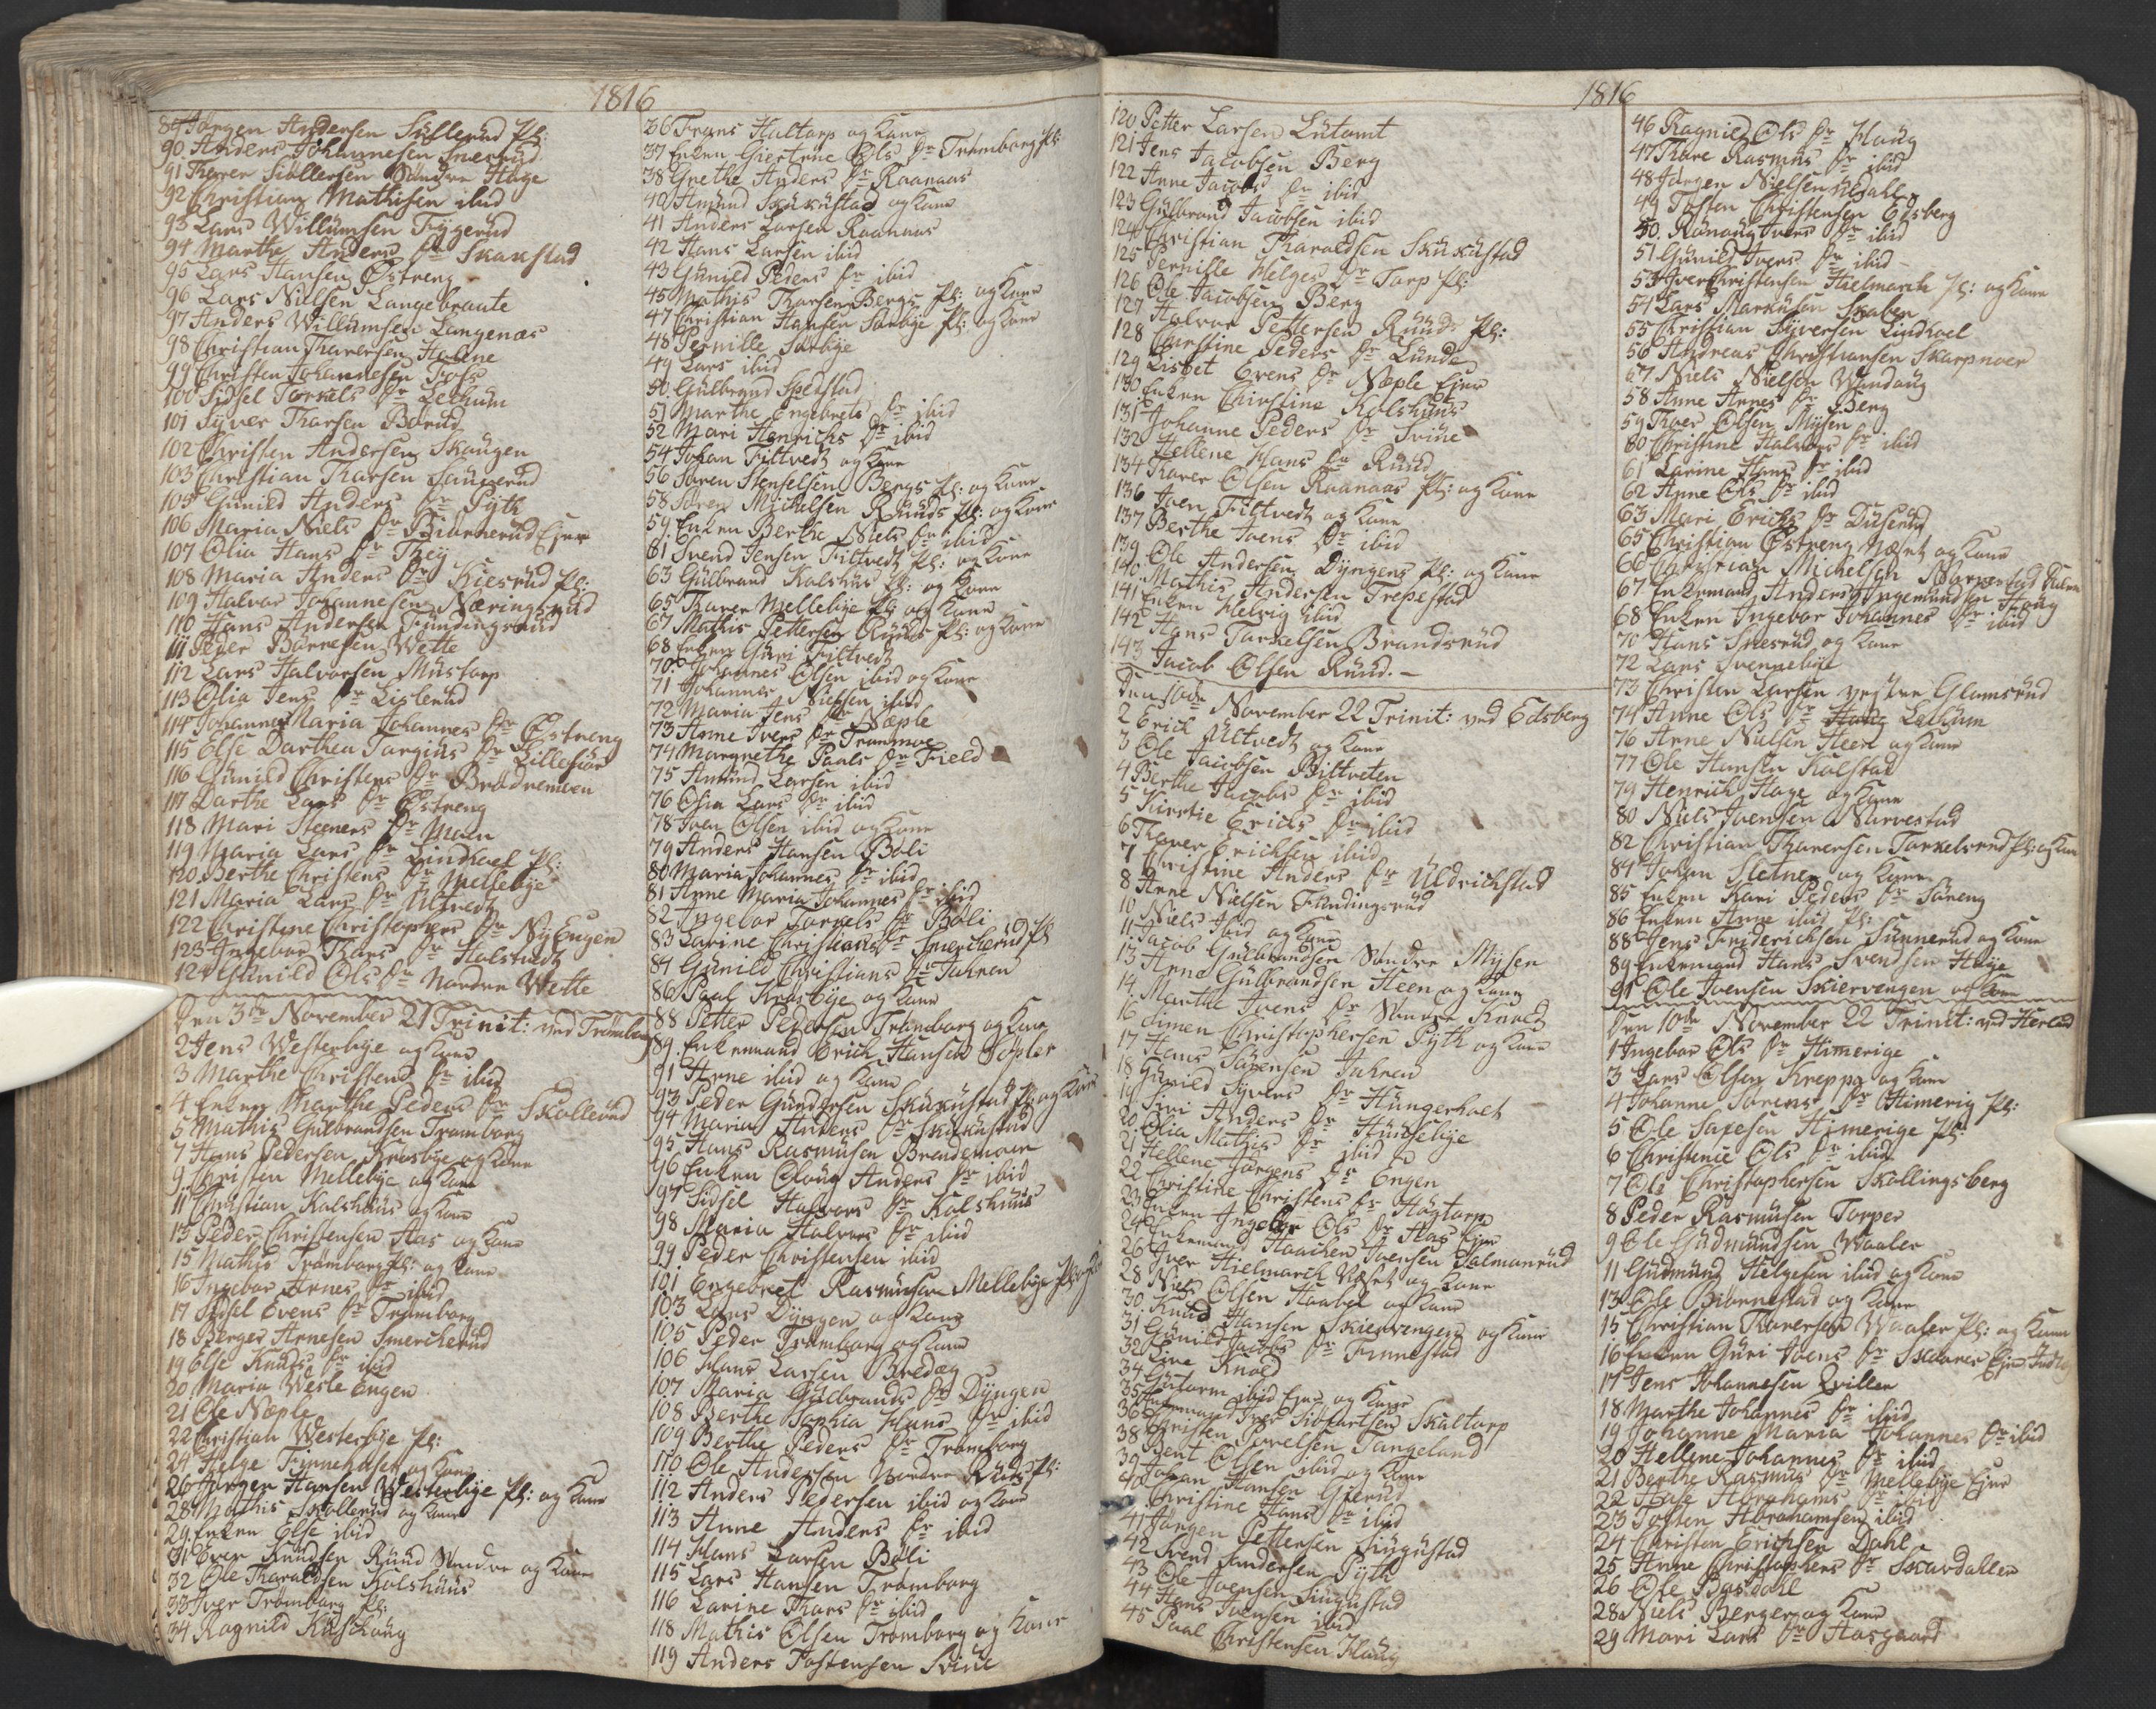 1816
89 Jørgen Andersen Sullerud Pl:
90. Anders Johannesen Snerud
91 Thorer Siøllersen Søndre Hage
92 Christian Mathisen ibid
93 Lars Willumsen Fygerud
94 Marthe Anders Dr Skakstad
95 Lars Hansen Østreng
96 Lars Nielsen Langebraate
97 Anders Willumsen Langenæs
98 Christian Tharersen Holene
99 Christen Johannesen Foss
100 Sidsel Torkels Dr Lechum
101 Syver Tharsen Børud
102 Christen Andersen Skaugen
103 Christian Tharsen Saugerud
105 Gunild Anders Dr Pyth
106 Maria Niels Dr Biørnerud Ejer
107 Olia Hans Dr They
108 Maria Anders Dr Kiesrud Pl:
109 Halvor Johannesen Næringsrud
110 Hans Andersen Fundingsrud
111 Peder Børresen Wette
112 Lars Halvorsen Mustorp
113 Olia Jens Dr Lislerud
114 Johanne Maria Johannes Dr Østreng
115 Else Darthea Torgius Dr Lillesiør
116 Gunild Christens Dr Brødremoen
117 Darthe Lars Dr Østreng
118 Mari Steeners Dr Moen
119 Maria Lars Dr Lindhoel Pl:
120 Berthe Christens Dr Mellebye
121 Maria Lars Dr Ultvedt
122 Christine Christophers Dr Ny Engen
123 Ingebor Thars Dr Holstvedt
124 Gunild Ols Dr Nordre Wette
Den 3die November 21 Trinit: ved Trømborg
2 Jens Westerbye og Kone
3 Marthe Christens Dr ibid
4 Enken Marthe Peders Dr Skollerud
5 Mathis Gulbrandsen Trømborg
7 Hans Pedersen Krosbye og Kone
9 Christen Mellebye og Kone
11 Christian Kolshuus og Kone
13 Peder Christensen Aas og Kone
15 Mathis Trømborg Pl: og Kone
16 Ingebor Arnes Dr ibid
17 Sidsel Evens Dr Trømborg
18 Berger Arnesen Smercherud
19 Else Knuds Dr ibid
20 Maria Wesle Engen
21 Ole Næple
22 Christian Westerbye Pl:
24 Helge Finnehusen og Kone
26 Jørgen Hansen Westerbye Pl: og Kone
28 Mathis Skollerud og Kone
29 Enken Else ibid
31 Even Knudsen Ruud Søndre og Kone
32 Ole Tharaldsen Kolshuus
33 Iver Trømborg Pl:
34 Ragnild Kaashaug
36 Frans Haltorp og Kone
37 Enken Giertrue Ols Dr Trømborg Pl:
38 Grethe Anders Dr Raanaas
40 Amund Skukustad og Kone
41 Anders Larsen Raanaas
42 Hans Larsen ibid
43 Gunild Peders Dr ibid
45 Mathis Tharsen Bergs Pl: og Kone
47 Christian Hansen Sørbye Pl: og Kone
48 Pernille Sørbye
49 Lars ibid
50. Gulbrand Spedstad
51 Marthe Engebrets Dr ibid
52 Mari Henrichs Dr ibid
54 Johan Filtvedt og Kone
56 Søren Stenselsen Bergs Pl: og Kone
58 Søren Michelsen Ruuds Pl: og Kone
59 Enken Berthe Niels Dr ibid
61 Svend Jensen Filtvedt Pl: og Kone
63 Gulbrand Kolshus Pl: og Kone
65 Tharer Mellebye Pl: og Kone
67 Mathis Pettersen Ruuds Pl: og Kone
68 Enken Guri Filtvedt
70 Johannes Olsen ibid og Kone
71 Johannes Nielsen ibid
72 Maria Jens Dr Næple
73 Anne Ivers Dr Trømmoe
74 Margrethe Paals Dr Field
75 Amund Larsen ibid
76 Olia Lars Dr ibid
78 Iver Olsen ibid og Kone
79 Anders Hansen Boli
80 Maria Johannes Dr ibid
81 Anne Maria Johannes Dr ibid
82 Ingebor Torkels Dr Boli
83 Larine Christians Dr Smercherud Pl
84 Gunild Christians Dr Jahren
86 Paal Krosbye og Kone
88 Petter Pedersen Trømborg og Kone
89. Enkemand Erich Hansen Sopler
91 Arne ibid og Kone
93 Peder Gundersen Skukustad Pl: og Kone
94 Maria Anders Dr Skukustad
95 Hans Rasmusen Brendemoen
96 Enken Oloug Anders Dr ibid
97 Sidsel Halvors Dr Kolshuus
98 Maria Halvors Dr ibid
99 Peder Christensen ibid
101 Engebret Rasmusen Mellebye Pl:
103 Lars Dyngen og Kone
105 Peder Trømborg og Kone
106 Hans Larsen Bredeg
107 Maria Gulbrands Dr Dyngen
108 Berthe Sophia Hans Dr ibid
109 Berthe Peders Dr Trømborg
110 Ole Andersen Nordre Ruuds Pl:
112 Anders Pedersen ibid og Kone
113 Anne Anders Dr ibid
114 Hans Larsen Boli
115 Lars Hansen Trømborg
116 Larine Thars Dr ibid
118 Mathis Olsen Trømborg og Kone
119 Anders Tostensen Svine
1816
120 Petter Larsen Lutomt
121 Jens Jacobsen Berg
122 Anne Jacobs Dr ibid
123 Gulbrand Jacobsen ibid
124 Christian Tharaldsen Skukustad
125 Pernille Helges Dr Torp Pl:
126 Ole Jacobsen Berg
127 Halvor Pettersen Ruuds Pl:
128 Christine Peders Dr Lunde
129 Lisbet Evens Dr Næple Ejer
130 Enken Christine Kolshuus
131 Johanne Peders Dr Svine
132 Hellene Hans Dr Ruud
134 Tharer Olsen Raanaas Pl: og Kone
136 Joen Filtvedt og Kone
137 Berthe Joens Dr ibid
139 Ole Andersen Dyngens Pl: og Kone
140 Mathis Andersen Trepestad
141 Enken Helvig ibid
142 Hans Torkelsen Brandsrud
143 Jacob Olsen Ruud. –
Den 10de November 22 Trinit: ved Edsberg
2 Erich Ultvedt og Kone
3 Ole Jacobsen Biltveten
4 Berthe Jacobs Dr ibid
5 Kierstie Erichs Dr ibid
6 Tharer Erichsen ibid
7 Christine Anders Dr Uldrichstad
8 Arne Nielsen Fundingsrud
10 Niels ibid og Kone
11 Jacob Gulbrandsen Søndre Mysen
13 Arne Gulbrandsen Heen og Kone
14 Marthe Joens Dr Søndre Knold
16 Simen Christophersen Pyth og Kone
17 Hans Sørensen Jahren
18 Gunild Syvers Dr Hungerholt
19 Siri Anders Dr Hundsebye
20 Olia Mathis Dr ibid
21 Hellene Jørgens Dr Engen
22 Christine Christens Dr Høgtorp
23 Enken Ingebor Ols Dr Aas Ejer
24 Enkemand Haachen Joensen Salmonrud
26 Iver Hielmarch Næset og Kone
28 Niels Olsen Haabel og Kone
30. Knud Hansen Skiervengen og Kone
31 Gunild Jacobs Dr Finnestad
32 Live Knold
34 Guttorm ibid Ejer og Kone
35 Enkemand Iver Sibjørtsen Skaltorp
36 Christen Povelsen Tangeland
38 Bent Olsen ibid og Kone
39 Johan Hansen Gierud
40 Christine Hans Dr ibid
41 Jørgen Pettersen Siugustad
42 Svend Andersen Pyth
43 Ole Joensen Siugustad
44 Hans Joensen ibid
45 Paal Christensen Haug
46 Ragnild Ols Dr Haug
47 Thore Rasmus Dr ibid
48 Jørgen Nielsen Ustahl
49 Tosten Christensen Edsberg
50. Rønnaug Ivers Dr ibid
51 Gunild Ivers Dr ibid
53 Iver Christensen Hielmarch Pl: og Kone
54 Lars Markusen Skaben
55 Christian Syversen Lindhoel
56 Andreas Christiansen Skarpnoer
57 Niels Nielsen Wandaug
58 Anne Arnes Dr Berg
59 Thoer Olsen Mysen
60 Christine Halvors Dr ibid
61 Larine Hans Dr ibid
62 Anne Ols Dr ibid
63 Mari Erichs Dr Duserud
65 Christian Østreng Næset og Kone
66 Christian Michelsen Narvestad
67 Enkemand Anders Ingemundsen Haug
68 Enken Ingebor Johannes Dr ibid
70 Hans Snesrud og Kone
72 Lars Svennebye
73 Christen Larsen vestre Glomsrud
74 Anne Ols Dr Haug Lechum
76 Arne Nielsen Heen og Kone
77 Ole Hansen Kolstad
79 Henrich Hage og Kone
80 Niels Joensen Narvestad
82 Christian Tharersen Torkelsrud Pl: og Kone
84 Johan Sletner og Kone
85 Enken Kari Peders Dr Søreng
86 Enken Anne ibid Pl:
88 Jens Friderichsen Sunnerud og Kone
89 Enkemand Hans Svendsen Haje
91 Ole Joensen Skiervengen og Kone
Den 10de November 22 Trinit: ved Herland
1 Ingebor Ols Dr Himerige
3 Lars Olsen Kreppa og Kone
4 Johanne Sørens Dr Himerig Pl:
5 Ole Saxesen Himerige Pl:
6 Christence Ols Dr ibid
7 Ole Christophersen Skallingsberg
8 Peder Rasmusen Torper
9 Ole Gudmundsen Waaler
11 Gudmund Helgesen ibid og Kone
13 Ole Biørnestad og Kone
15 Christian Tharersen Waaler Pl: og Kone
16 Enken Guri Joens Dr Skaarer Ejer
17 Jens Johannesen Qviller
18 Marthe Johannes Dr ibid
19 Johanne Maria Johannes Dr ibid
20 Hellene Johannes Dr ibid
21 Berthe Rasmus Dr Mellebye Ejer
22 Else Abrahams Dr ibid
23 Tosten Abrahamsen ibid
24 Christen Erichsen Dahl
25 Anne Christophers Dr Skavdahlen
26 Ole Bøsdahl
28 Niels Berger og Kone
29 Mari Lars Dr Aasgaard